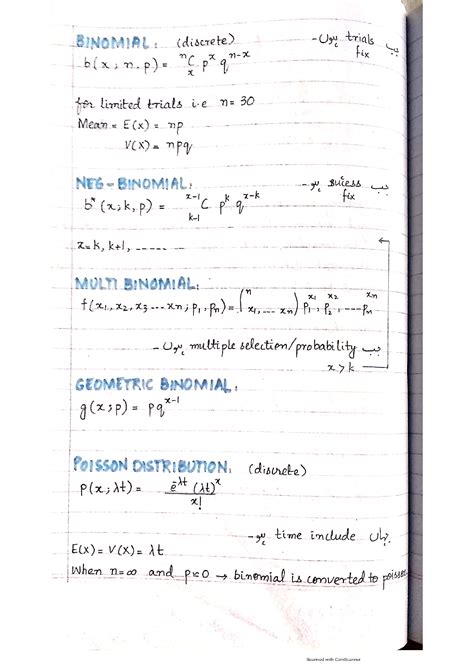 BINOMIAL: (discrete)
جب trials fix ہوں -
b(x; n, p) = ⁿCₓ pˣ qⁿ⁻ˣ
for limited trials i.e n = 30
Mean = E(x) = np
V(x) = npq
NEG-BINOMIAL:
جب sucess fix ہو -
b*(x; k, p) = ˣ⁻¹Cₖ₋₁ pᵏ qˣ⁻ᵏ
x = k, k+1, ------
MULTI BINOMIAL:
f(x₁, x₂, x₃ --- xn; p₁, pn) = (n x₁, --- xn) p₁ˣ¹, p₂ˣ², ---- pnˣⁿ
جب multiple selection/probability ہوں -
x > k
GEOMETRIC BINOMIAL:
g(x; p) = pqˣ⁻¹
POISSON DISTRIBUTION: (discrete)
p(x; λt) = e^-λt (λt)ˣ / x!
جہاں time include ہو -
E(x) = V(x) = λt
When n = ∞ and p = 0 → binomial is converted to poisson
Scanned with CamScanner